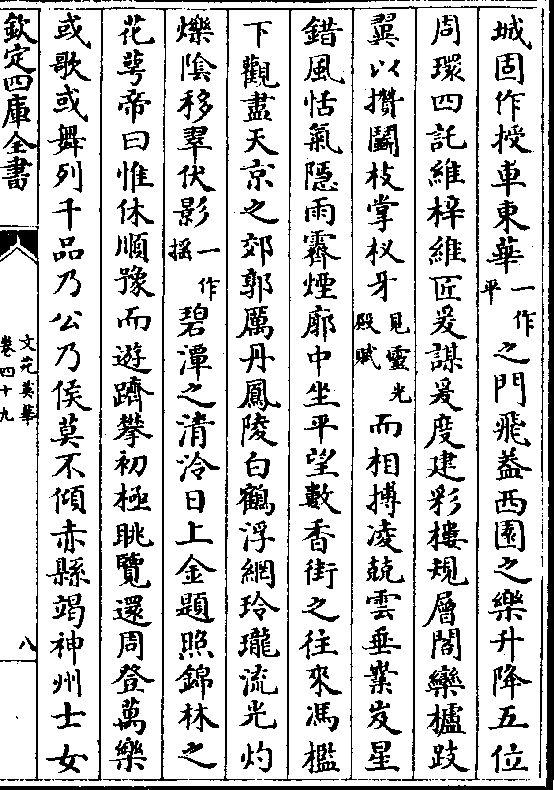 城固作授車東華一作平之門飛葢西園之樂升降五位
周環四託維梓維匠爰謀爰度建彩樓規層閣欒櫨跂
翼以攢鬭枝掌杈牙見靈光殿賦而相搏凌兢雲垂業岌星
錯風恬氣隱雨霽煙廓中坐平望數香街之往來馮檻
下觀盡天京之郊郭厲丹鳳陵白鶴浮網玲瓏流光灼
爍陰移翠伏影一作摇碧潭之清泠日上金題照錦林之
花萼帝曰惟休順豫而遊躋攀初極眺覽還周登萬樂
或歌或舞列千品乃公乃侯莫不傾赤縣竭神州士女
欽定四庫全書
文苑英華
卷四十九
八